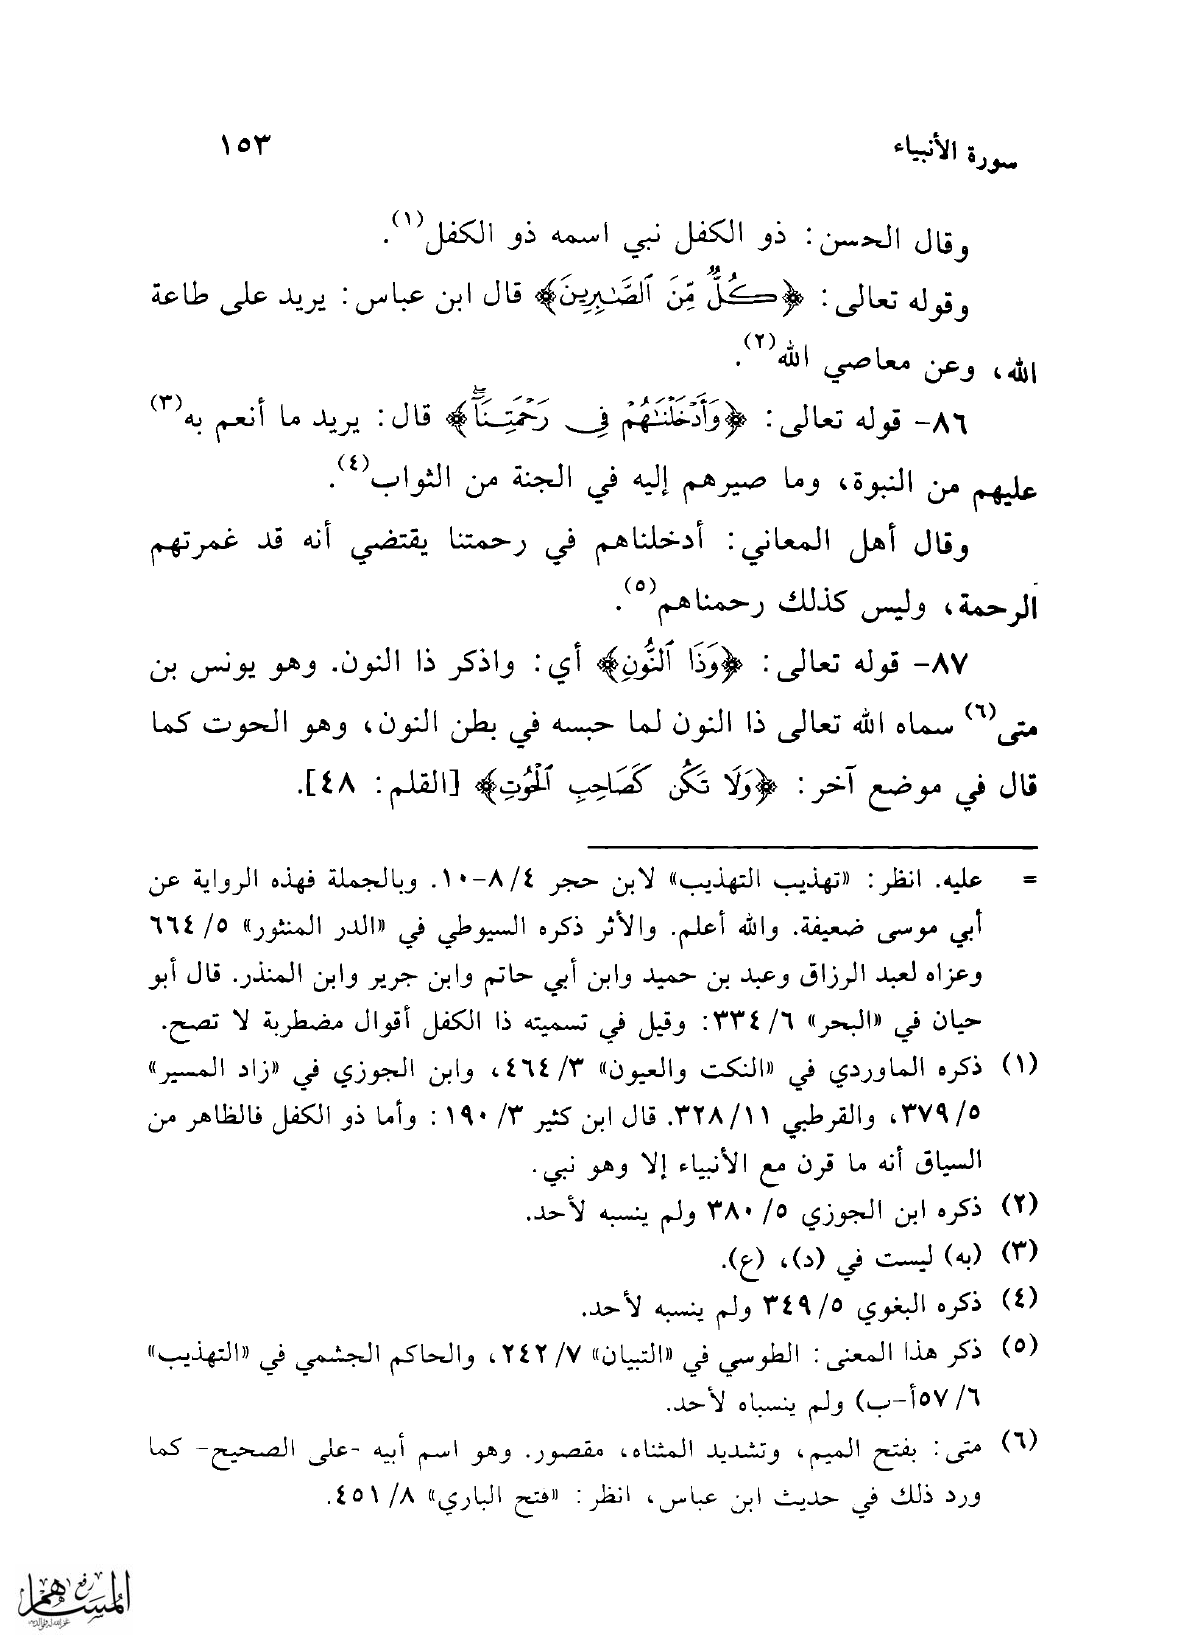 سورة الأنبياء ١٥٣
وقال الحسن: ذو الكفل نبي اسمه ذو الكفل(١).
وقوله تعالى: ﴿كُلٌّ مِّنَ ٱلصَّٰبِرِينَ﴾ قال ابن عباس: يريد على طاعة
الله، وعن معاصي الله(٢).
٨٦- قوله تعالى: ﴿وَأَدْخَلْنَٰهُمْ فِى رَحْمَتِنَآ ۖ﴾ قال: يريد ما أنعم به(٣)
عليهم من النبوة، وما صيرهم إليه في الجنة من الثواب(٤).
وقال أهل المعاني: أدخلناهم في رحمتنا يقتضي أنه قد غمرتهم
الرحمة، وليس كذلك رحمناهم(٥).
٨٧- قوله تعالى: ﴿وَذَا ٱلنُّونِ﴾ أي: واذكر ذا النون. وهو يونس بن
متى(٦) سماه الله تعالى ذا النون لما حبسه في بطن النون، وهو الحوت كما
قال في موضع آخر: ﴿وَلَا تَكُن كَصَاحِبِ ٱلْحُوتِ﴾ [القلم: ٤٨].
= عليه. انظر: «تهذيب التهذيب» لابن حجر ٤/ ٨-١٠. وبالجملة فهذه الرواية عن
أبي موسى ضعيفة. والله أعلم. والأثر ذكره السيوطي في «الدر المنثور» ٥/ ٦٦٤
وعزاه لعبد الرزاق وعبد بن حميد وابن أبي حاتم وابن جرير وابن المنذر. قال أبو
حيان في «البحر» ٦/ ٣٣٤: وقيل في تسميته ذا الكفل أقوال مضطربة لا تصح.
(١) ذكره الماوردي في «النكت والعيون» ٣/ ٤٦٤، وابن الجوزي في «زاد المسير»
٥/ ٣٧٩، والقرطبي ١١/ ٣٢٨. قال ابن كثير ٣/ ١٩٠: وأما ذو الكفل فالظاهر من
السياق أنه ما قرن مع الأنبياء إلا وهو نبي.
(٢) ذكره ابن الجوزي ٥/ ٣٨٠ ولم ينسبه لأحد.
(٣) (به) ليست في (د)، (ع).
(٤) ذكره البغوي ٥/ ٣٤٩ ولم ينسبه لأحد.
(٥) ذكر هذا المعنى: الطوسي في «التبيان» ٧/ ٢٤٢، والحاكم الجشمي في «التهذيب»
٦/ ٥٧أ-ب) ولم ينسباه لأحد.
(٦) متى: بفتح الميم، وتشديد المثناه، مقصور. وهو اسم أبيه -على الصحيح- كما
ورد ذلك في حديث ابن عباس، انظر: «فتح الباري» ٨/ ٤٥١.